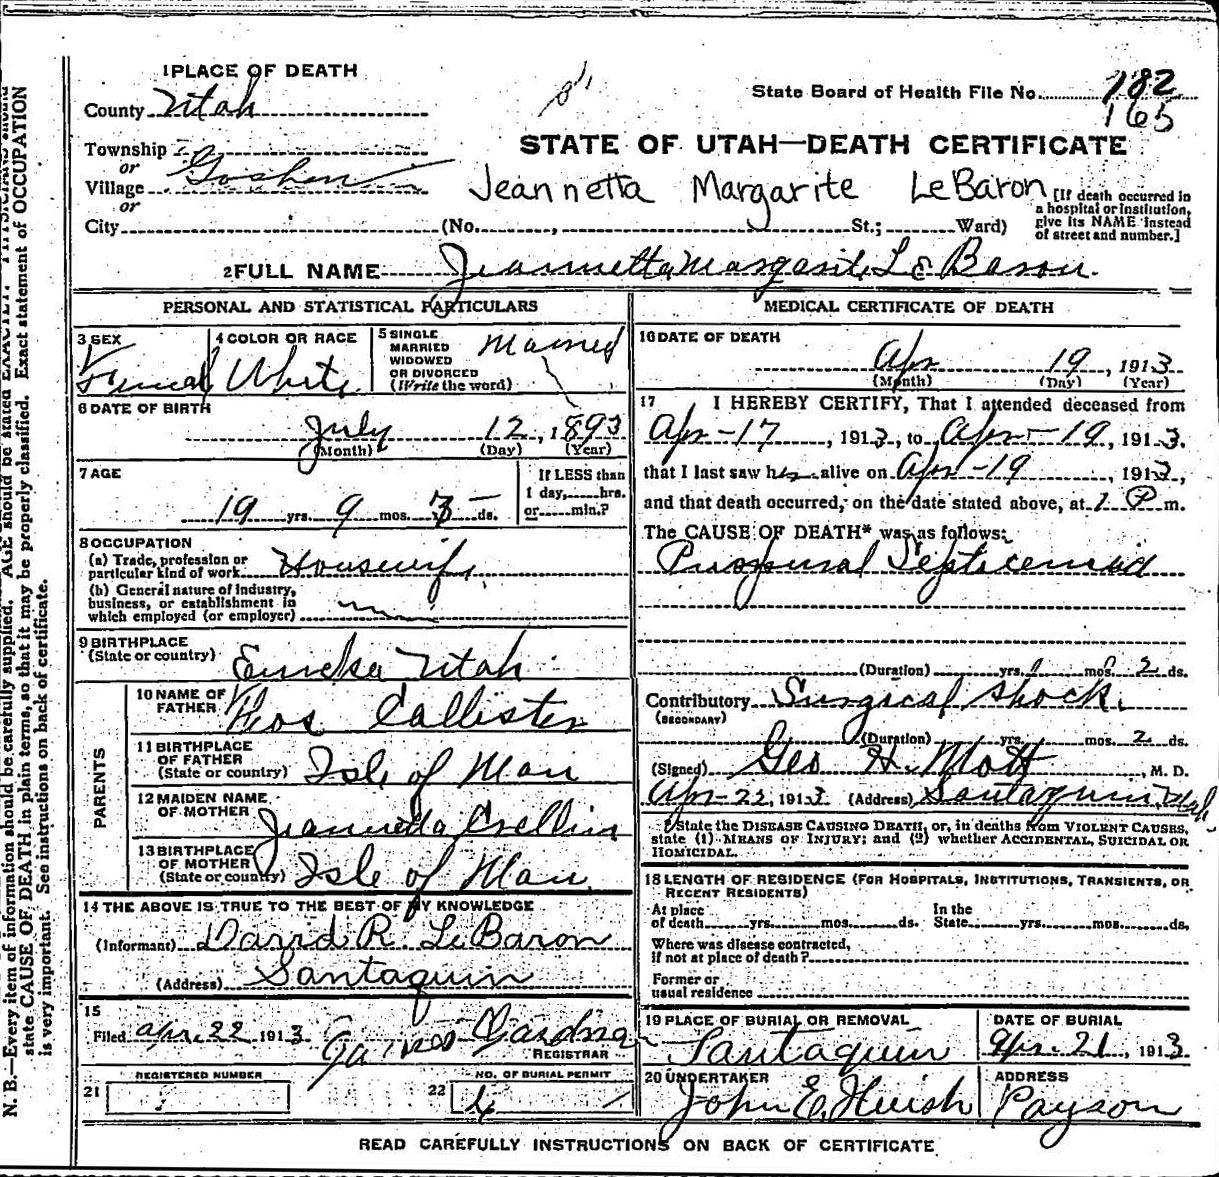 1 PLACE OF DEATH
County Utah
Township
or
Village Goshen
or
City (No. , St.; Ward)
State Board of Health File No. 182
165
STATE OF UTAH—DEATH CERTIFICATE
Jeannetta Margarite LeBaron
[If death occurred in
a hospital or institution,
give its NAME instead
of street and number.]
2 FULL NAME Jeannetta Margarite Le Baron
PERSONAL AND STATISTICAL PARTICULARS
3 SEX
Female
4 COLOR OR RACE
White
5 SINGLE
MARRIED
WIDOWED
OR DIVORCED
(Write the word)
Married
6 DATE OF BIRTH
July 12, 1893
(Month) (Day) (Year)
7 AGE
19 yrs. 9 mos. 7 ds.
If LESS than
1 day, hrs.
or min.?
8 OCCUPATION
(a) Trade, profession or
particular kind of work Housewife
(b) General nature of industry,
business, or establishment in
which employed (or employer)
9 BIRTHPLACE
(State or country) Eureka Utah
PARENTS
10 NAME OF
FATHER Thos Callister
11 BIRTHPLACE
OF FATHER
(State or country) Isle of Man
12 MAIDEN NAME
OF MOTHER Jeannetta Crellin
13 BIRTHPLACE
OF MOTHER
(State or country) Isle of Man
14 THE ABOVE IS TRUE TO THE BEST OF MY KNOWLEDGE
(Informant) David R. LeBaron
(Address) Santaquin
15
Filed Apr. 22 1913 James Gardner
REGISTRAR
REGISTERED NUMBER
21
NO. OF BURIAL PERMIT
22 4
MEDICAL CERTIFICATE OF DEATH
16 DATE OF DEATH
Apr 19, 1913
(Month) (Day) (Year)
17 I HEREBY CERTIFY, That I attended deceased from
Apr-17, 1913, to Apr-19, 1913.
that I last saw her alive on Apr-19, 1913,
and that death occurred, on the date stated above, at 1 P m.
The CAUSE OF DEATH* was as follows:
Puerperal Septicemia
(Duration) yrs. mos. 2 ds.
Contributory Surgical shock.
(SECONDARY)
(Duration) yrs. mos. 2 ds.
(Signed) Geo H. Mott, M. D.
Apr-22, 1913 (Address) Santaquin, Utah
*State the DISEASE CAUSING DEATH, or, in deaths from VIOLENT CAUSES,
state (1) MEANS OF INJURY; and (2) whether ACCIDENTAL, SUICIDAL OR
HOMICIDAL.
18 LENGTH OF RESIDENCE (FOR HOSPITALS, INSTITUTIONS, TRANSIENTS, OR
RECENT RESIDENTS)
At place
of death yrs. mos. ds.
In the
State yrs. mos. ds.
Where was disease contracted,
if not at place of death?
Former or
usual residence
19 PLACE OF BURIAL OR REMOVAL
Santaquin
DATE OF BURIAL
Apr. 21, 1913
20 UNDERTAKER
John E. Huish
ADDRESS
Payson
READ CAREFULLY INSTRUCTIONS ON BACK OF CERTIFICATE
N. B.—Every item of information should be carefully supplied. AGE should be stated EXACTLY. PHYSICIANS should
state CAUSE OF DEATH in plain terms, so that it may be properly classified. Exact statement of OCCUPATION
is very important. See instructions on back of certificate.